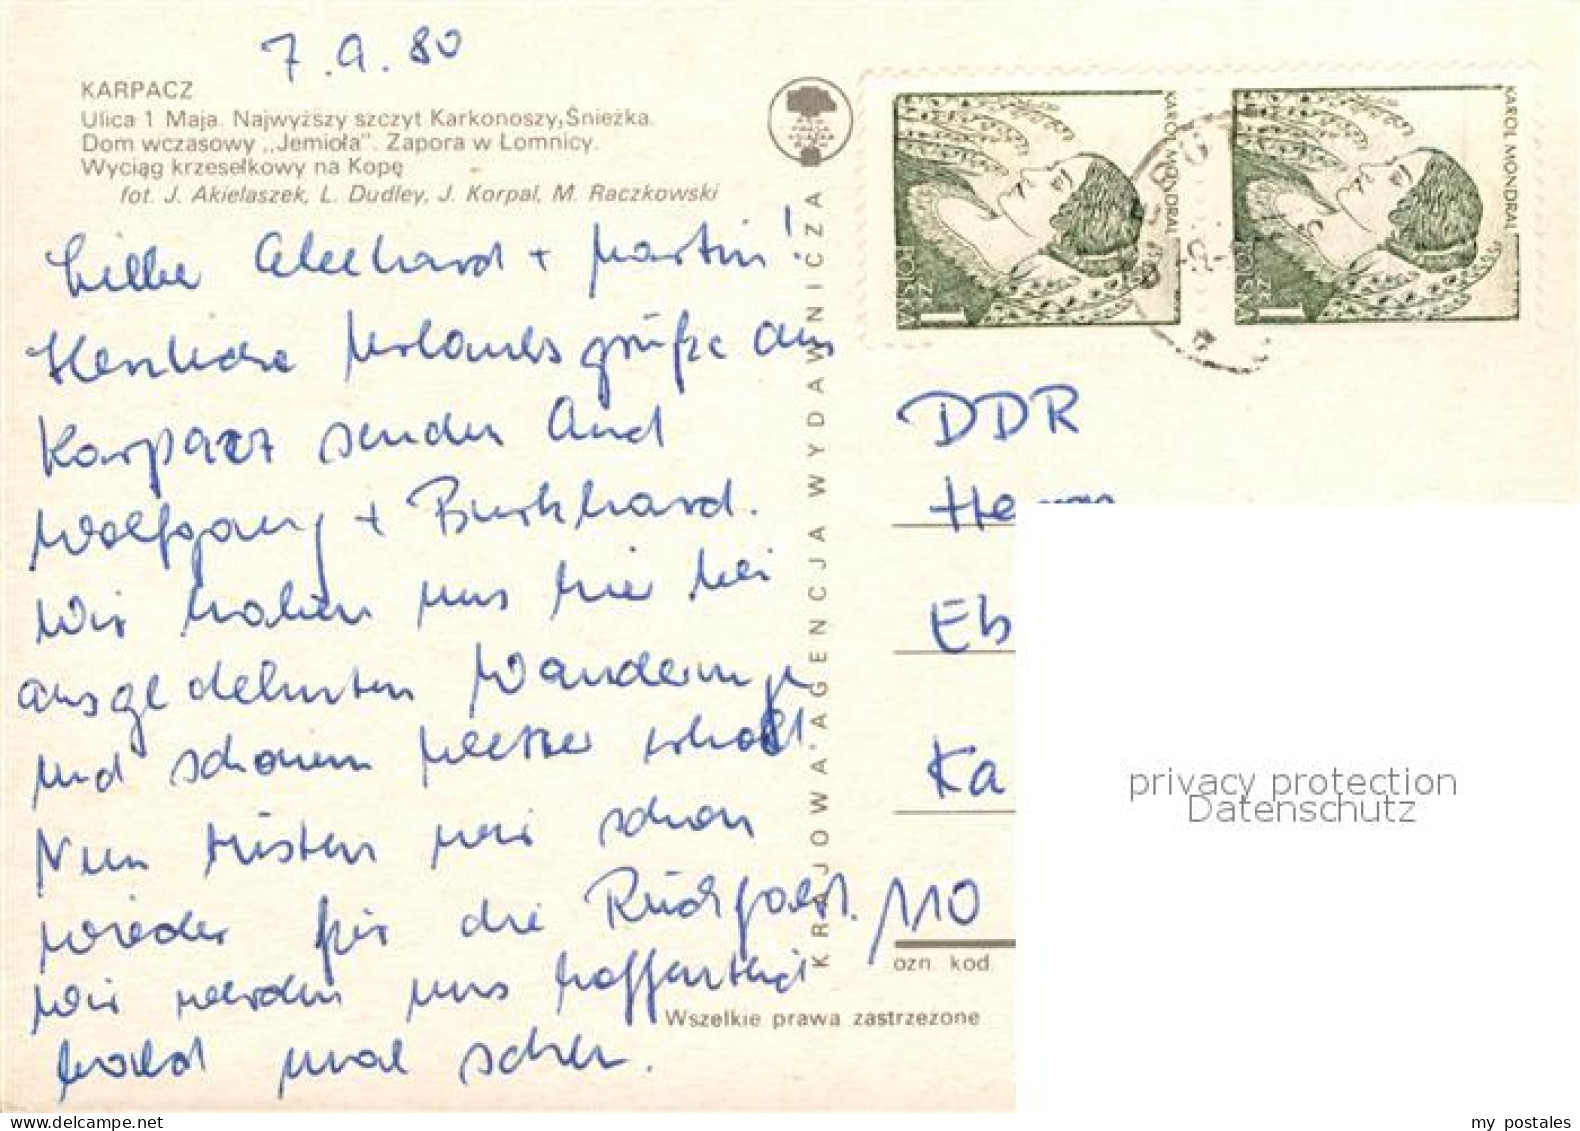 7.9.80
KARPACZ
Ulica 1 Maja. Najwyższy szczyt Karkonoszy, Śnieżka.
Dom wczasowy „Jemioła”. Zapora w Łomnicy.
Wyciąg krzesełkowy na Kopę
fot. J. Akielaszek, L. Dudley, J. Korpal, M. Raczkowski
Liebe Eberhard + Martin!
Herzliche Urlaubsgrüße aus
Karpacz senden Euch
Wolfgang + Burkhard.
Wir haben uns hier bei
ausgedehnten Wanderungen
und schönem Wetter erholt
Nun rüsten wir schon
wieder für die Rückfahrt.
Wir werden uns hoffentlich
bald mal sehen.
KRAJOWA AGENCJA WYDAWNICZA
KAROL MONDRAL
POLSKA
1 ZŁ
KAROL MONDRAL
POLSKA
1 ZŁ
DDR
Eb
Ka
110
ozn. kod.
Wszelkie prawa zastrzeżone
privacy protection
Datenschutz
my postales